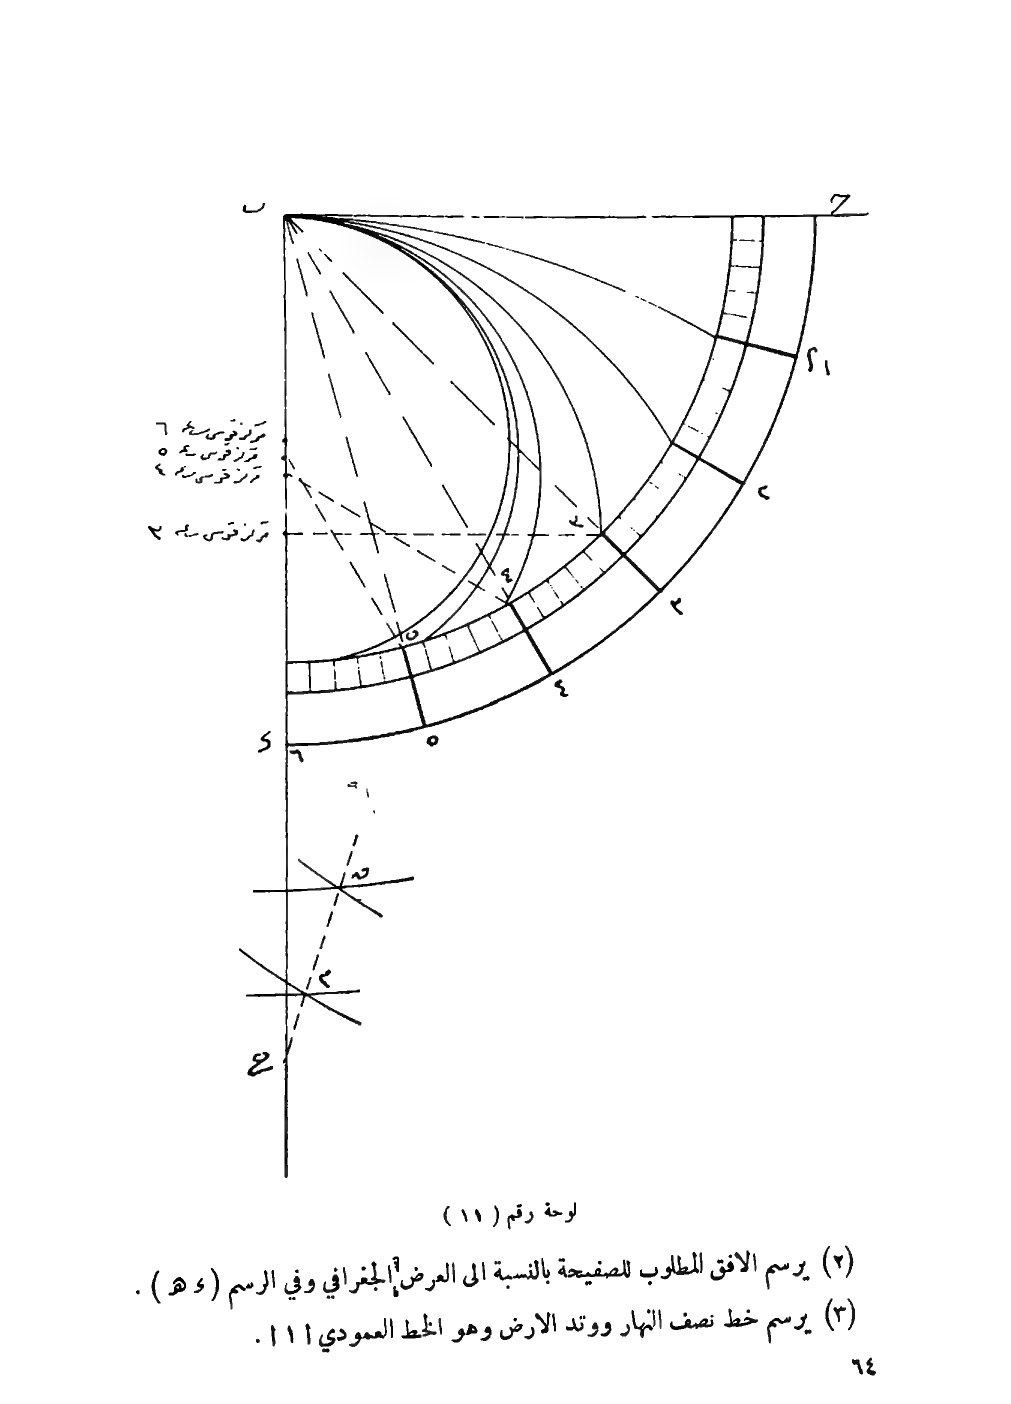 ب ح
م ١
مركز قوس ساعة ٦
مركز قوس ساعة ٥
مركز قوس ساعة ٤
٢
مركز قوس ساعة ٣
٣
٤
٣
٥
٤
د ٦
٥
ن
م
ع
لوحة رقم ( ١١ )
(٢) يرسم الافق المطلوب للصفيحة بالنسبة الى العرض الجغرافي وفي الرسم ( ء ه ) .
(٣) يرسم خط نصف النهار ووتد الارض وهو الخط العمودي أ ا أ .
٦٤